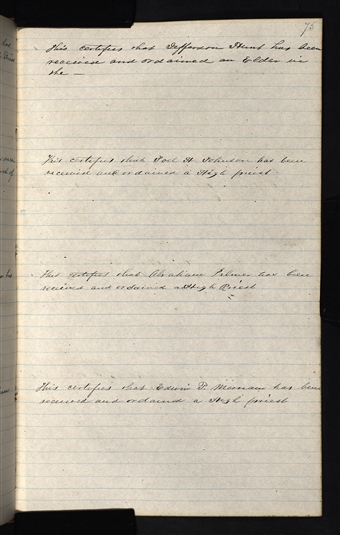 75
This certifies that Jefferson Hunt has been
received and ordained an Elder in
the —
This certifies that Joel H. Johnson has been
received and ordained a High priest
This certifies that Abraham Palmer has been
received and ordained a High Priest
This certifies that Edwin D. has been
received and ordained a High priest